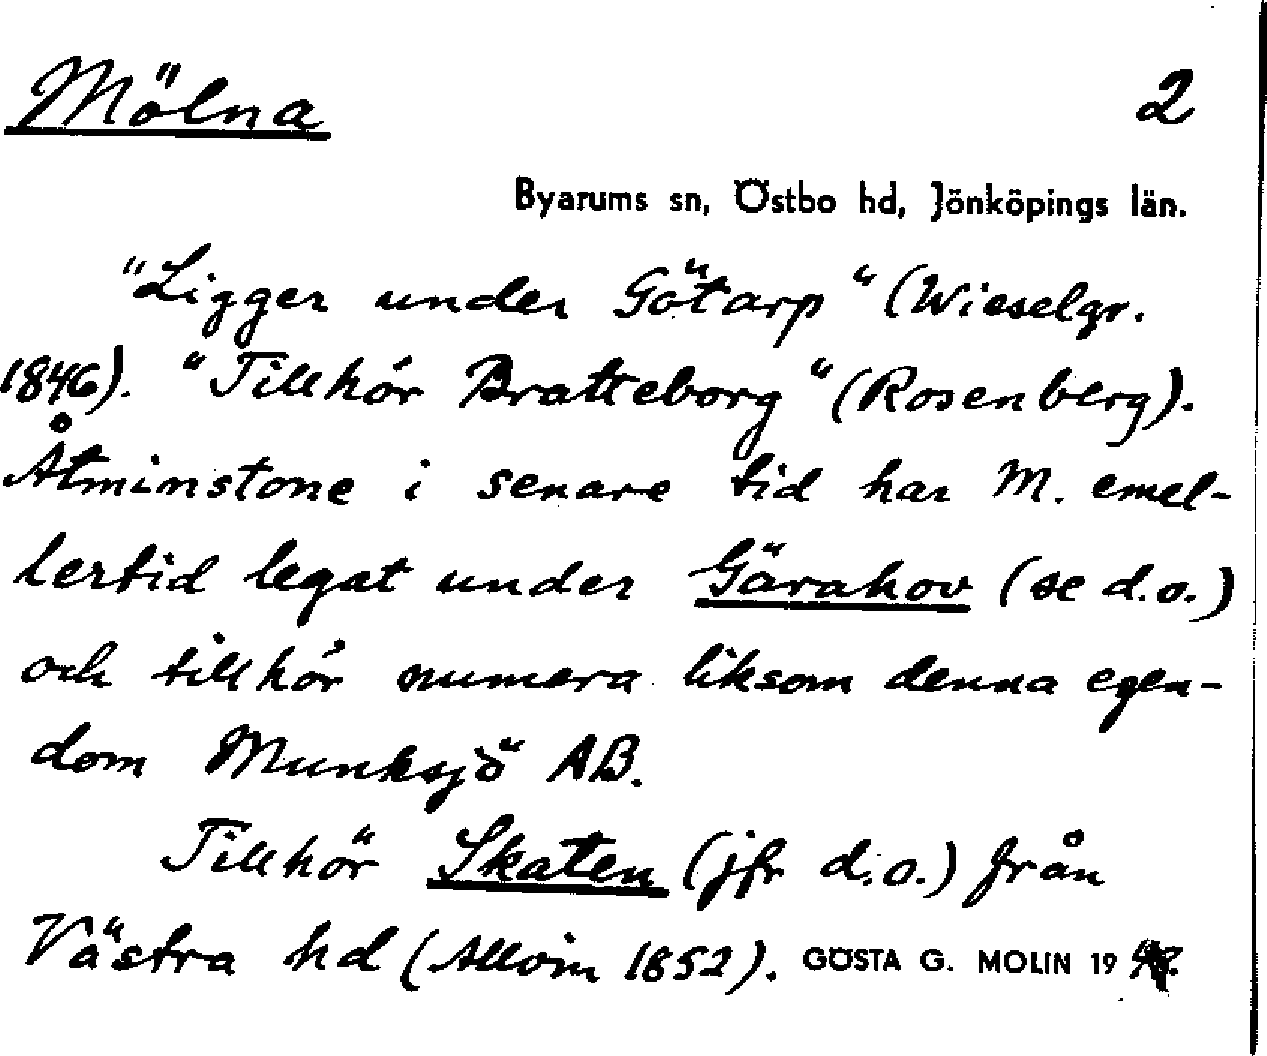 Mölna 2
Byarums sn, Östbo hd, Jönköpings län.
"Ligger under Götarp" (Wieselgr.
1846). "Tillhör Bratteborg" (Rosenberg).
Åtminstone i senare tid har M. emel-
lertid legat under Gärahov (se d.o.)
och tillhör numera liksom denna egen-
dom Munksjö AB.
Tillhör Skaten (jfr d.o.) från
Västra hd (Allvin 1852). GÖSTA G. MOLIN 19